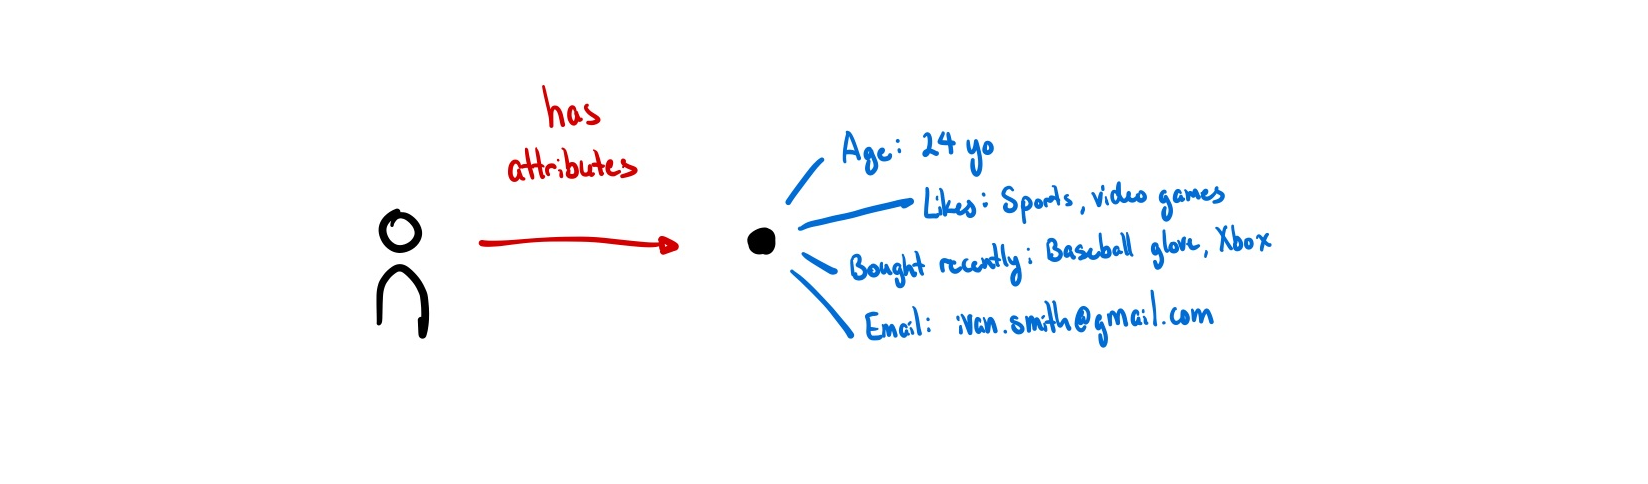 has
attributes
Age: 24 yo
Likes: Sports, video games
Bought recently: Baseball glove, Xbox
Email: ivan.smith@gmail.com